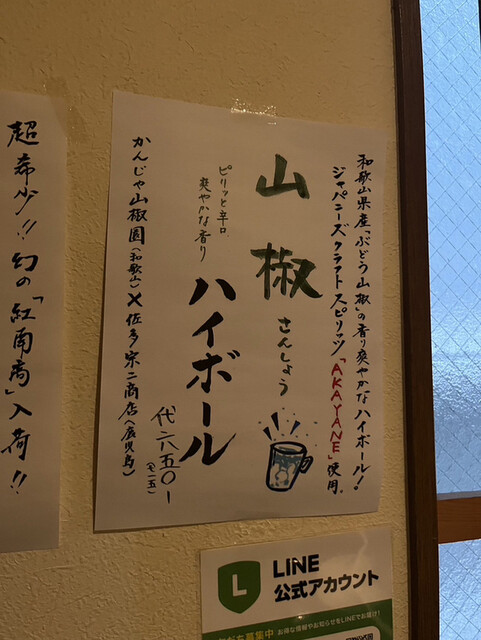 和歌山県産「ぶどう山椒」の香り爽やかなハイボール！
ジャパニーズクラフトスピリッツ「AKAYANE」使用。
山椒
さんしょう
ハイボール
ピリッと辛口
爽やかな香り
代六五〇ー
かんじゃ山椒園（和歌山）×佐多宗二商店（鹿児島）
超希少!!幻の「紅南高」入荷!!
LINE
公式アカウント
お得な情報やお知らせをLINEでお届け!